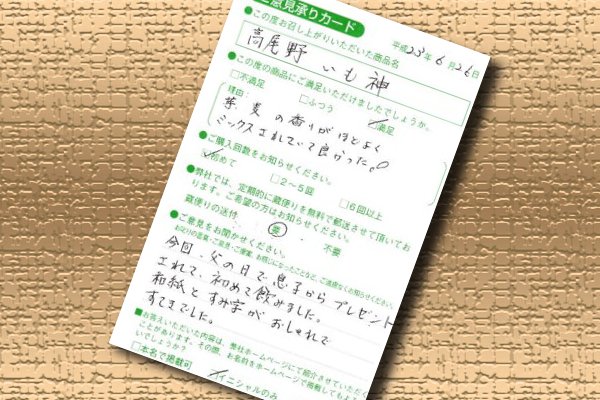 ご意見承りカード
●この度お召し上がりいただいた商品名
平成23年6月26日
高尾野 いも神
●この度の商品にご満足いただけましたでしょうか。
□不満足 □ふつう ☑満足
理由:
芋、麦の香りがほどよく
ミックスされていて良かった。
●ご購入回数をお知らせください。
☑初めて □2〜5回 □6回以上
●弊社では、定期的に蔵便りを無料で郵送させて頂いてお
ります。ご希望の方はお知らせください。
蔵便りの送付 要 ・ 不要
●ご意見をお聞かせください。
今回、父の日で息子からプレゼント
されて、初めて飲みました。
和紙とすみ字がおしゃれで
すてきでした。
■お答えいただいた内容は、弊社ホームページにて紹介させていただ
ことがあります。その際、お名前をホームページで掲載してもよ
いでしょうか?
□本名で掲載可 ☑イニシャルのみ